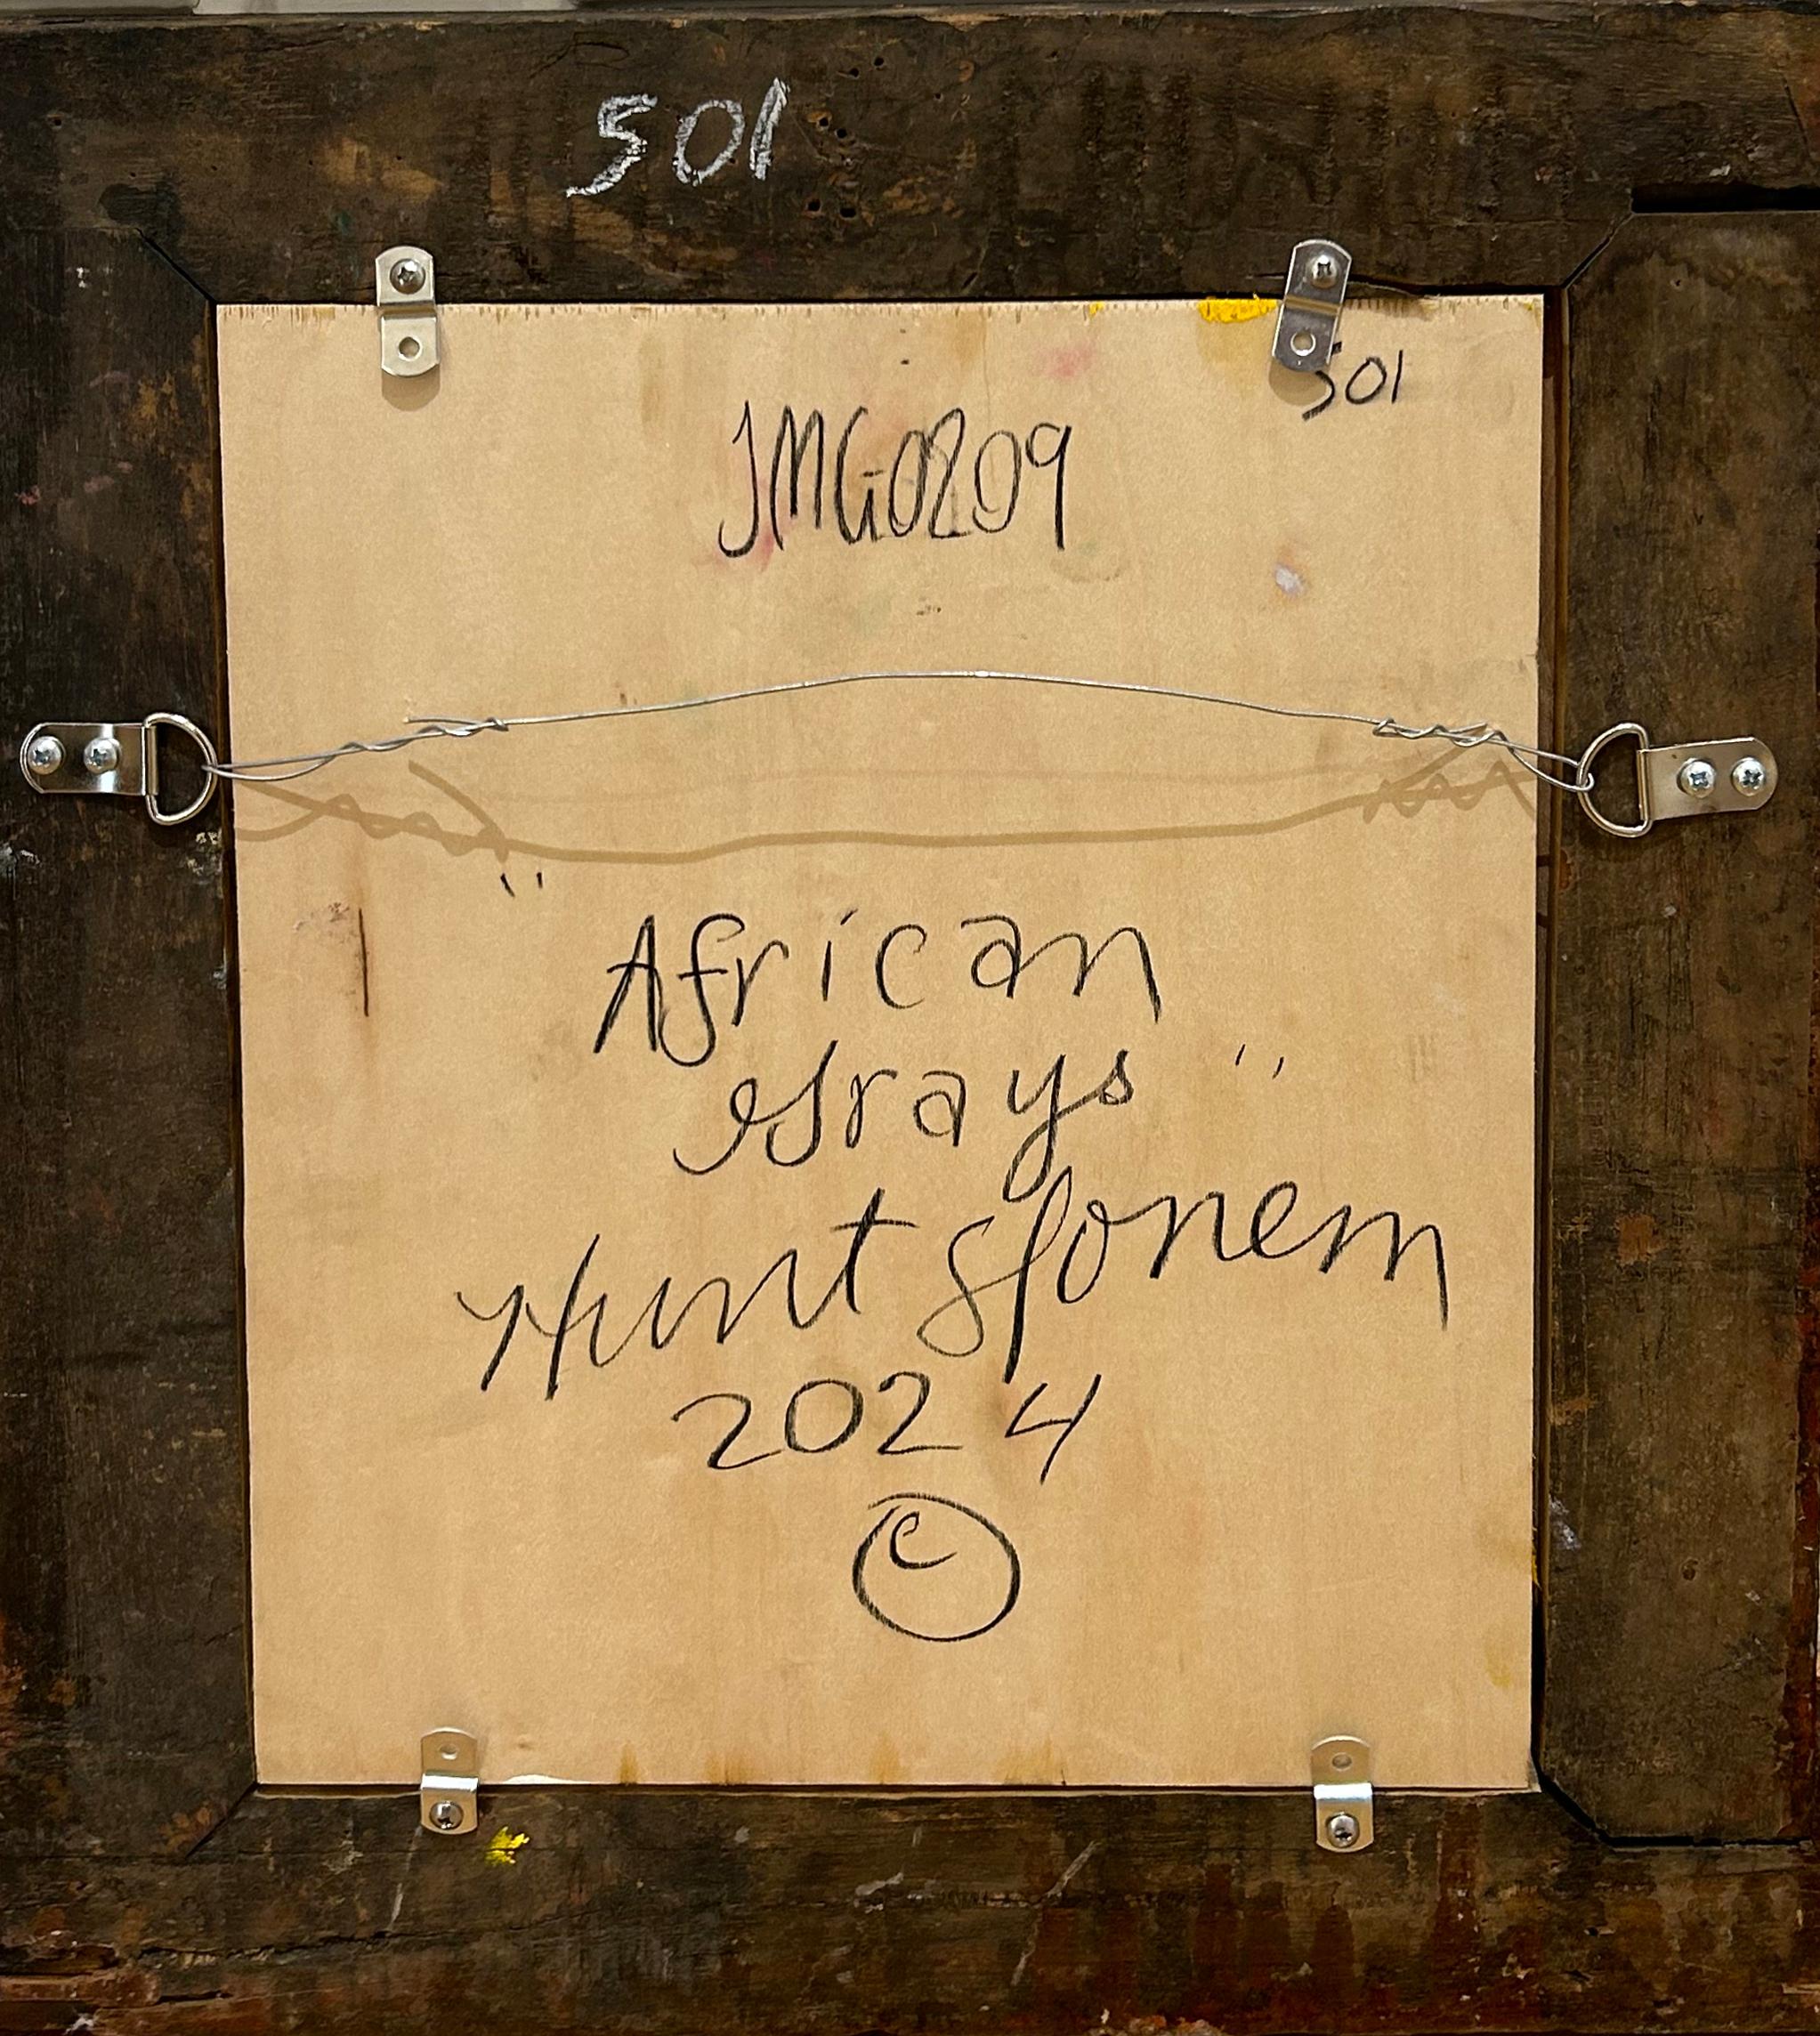 501
501
JMG0209
"African
Grays"
Hunt Slonem
2024
©